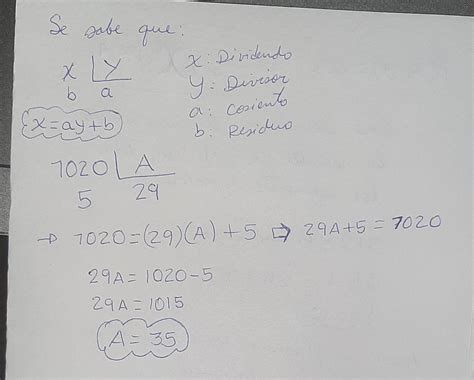 Se sabe que:
x y x: Dividendo
b a y: Divisor
a: Cosiento
x=ay+b b: Residuo
1020 A
5 29
→ 1020=(29)(A)+5 ⇒ 29A+5=1020
29A=1020-5
29A=1015
A=35